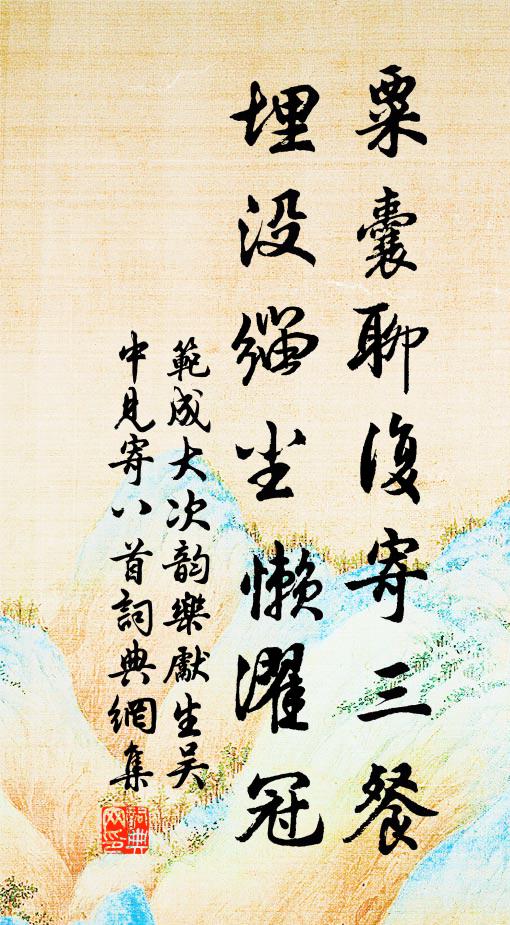 粟囊聊復寄三餐
埋没缁尘懒濯冠
範成大次韵樂獻生吴
中見寄八首詞典網集
詞典网印